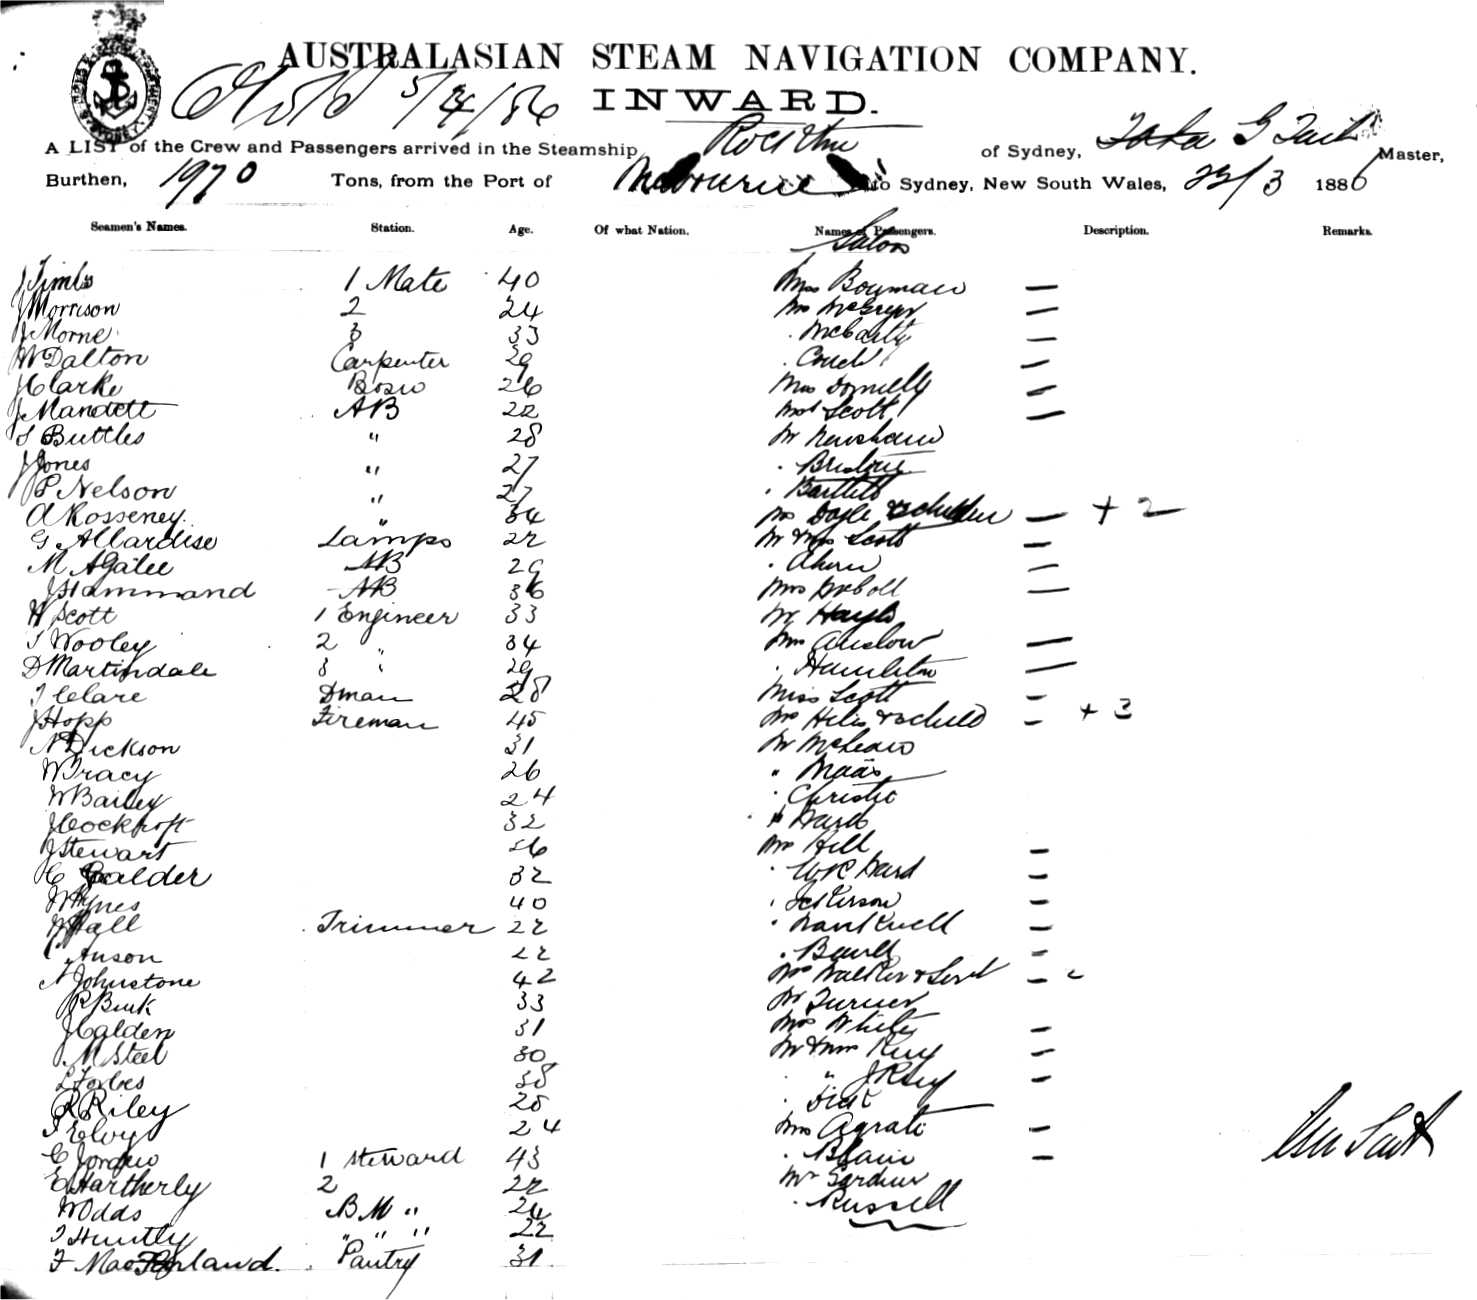 AUSTRALASIAN STEAM NAVIGATION COMPANY.
5/4/86 INWARD.
A LIST of the Crew and Passengers arrived in the Steamship of Sydney, Master,
Burthen, 1970 Tons, from the Port of Melbourne to Sydney, New South Wales, 22/3 1886
Seamen's Names. Station. Age. Of what Nation. Names of Passengers. Description. Remarks.
Saloon
J Timbs 1 Mate 40 Mrs Bowman —
J Morrison 2 24 Mrs McGregor —
J Morne 3 33 . McCarthy —
W Dalton Carpenter 29 . Couch —
J Clarke Bosn 26 Mrs Donnelly —
J Mandett AB 22 Scott —
T Buttles " 28 Mr Henshaw
J Jones " 27 . Bristow
P Nelson " 27 . Bartlett
A Rosseney " 34 Mrs Doyle & children — + 2
G Allardise Lamps 22 Mr & Mrs Scott —
M AGalee AB 29 . Ahern —
J Hammand AB 36 Mrs —
H Scott 1 Engineer 33 Mr Hayls
T Wooley 2 " 34 Mrs Anslow —
D Martindale 3 " 29 . Hamilton —
T Clare Dman 28 Miss Scott —
J Hopp Fireman 45 Mrs & child — + 3
N Dickson 31 Mr McLean
W Tracy 26 " Maas
W Bailey 24 . Christie
J Cockroft 32 . Ward
J Stewart 26 Mrs Hill —
C Calder 32 . Ward —
W Hynes 40 . —
W Hall Trimmer 22 . —
C Anson 22 . —
N Johnstone 42 Mrs Walker & Servt —
R Burk 33 Mr Turner
J Calden 31 Mrs White —
M Steel 30 Mr & Mrs —
L Forbes 38 . " —
R Riley 28 .
T Elvy 24 Mrs Agrati —
C Jordan 1 Steward 43 . Blair —
E Hartherly 2 22 Mr Gardner
W Odds BM " 24 . Russell
T Huntly " " " 22
F MacFarland. Pantry 31